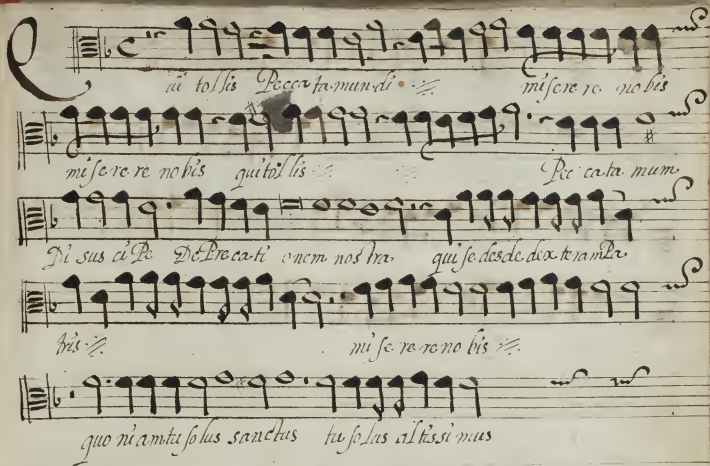 Qui tollis Peccata mundi miserere nobis
miserere nobis qui tollis Peccata mum
Di suscipe Deprecationem nostra qui sedes de dexteram Pa
tris miserere nobis
quoniam tu solus sanctus tu solus altissimus